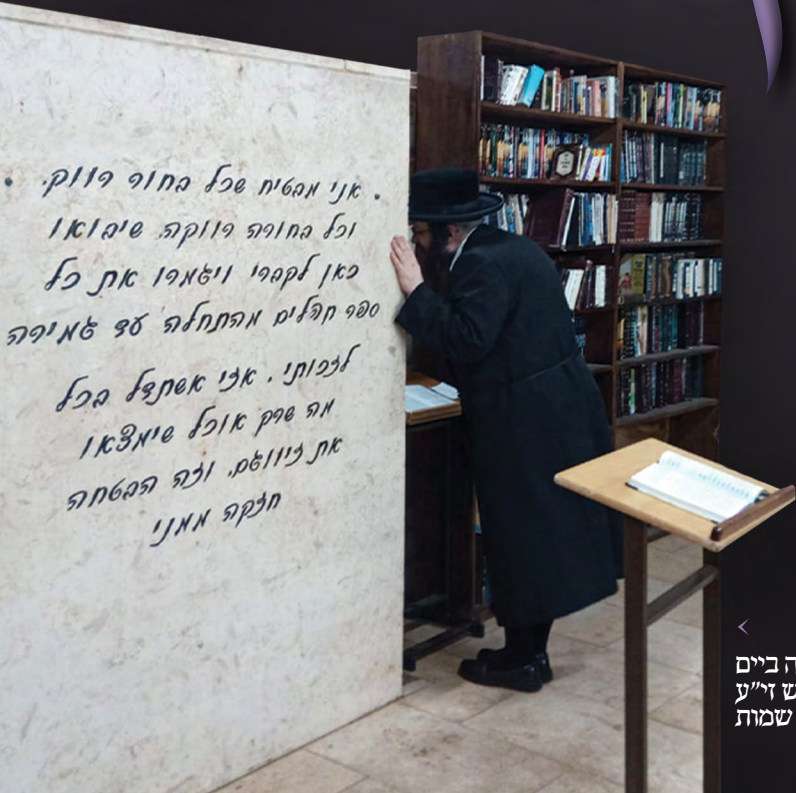 . אני מבטיח שכל בחור רווק. .
וכל בחורה רווקה. שיבואו
כאן לקברי ויגמרו את כל
ספר תהלים מהתחלה עד גמירה
לזכותי. אזי אשתדל בכל
מה שרק אוכל שימצאו
את זיווגם. וזה הבטחה
חזקה ממני
ה ביים
ש זי״ע
שמות